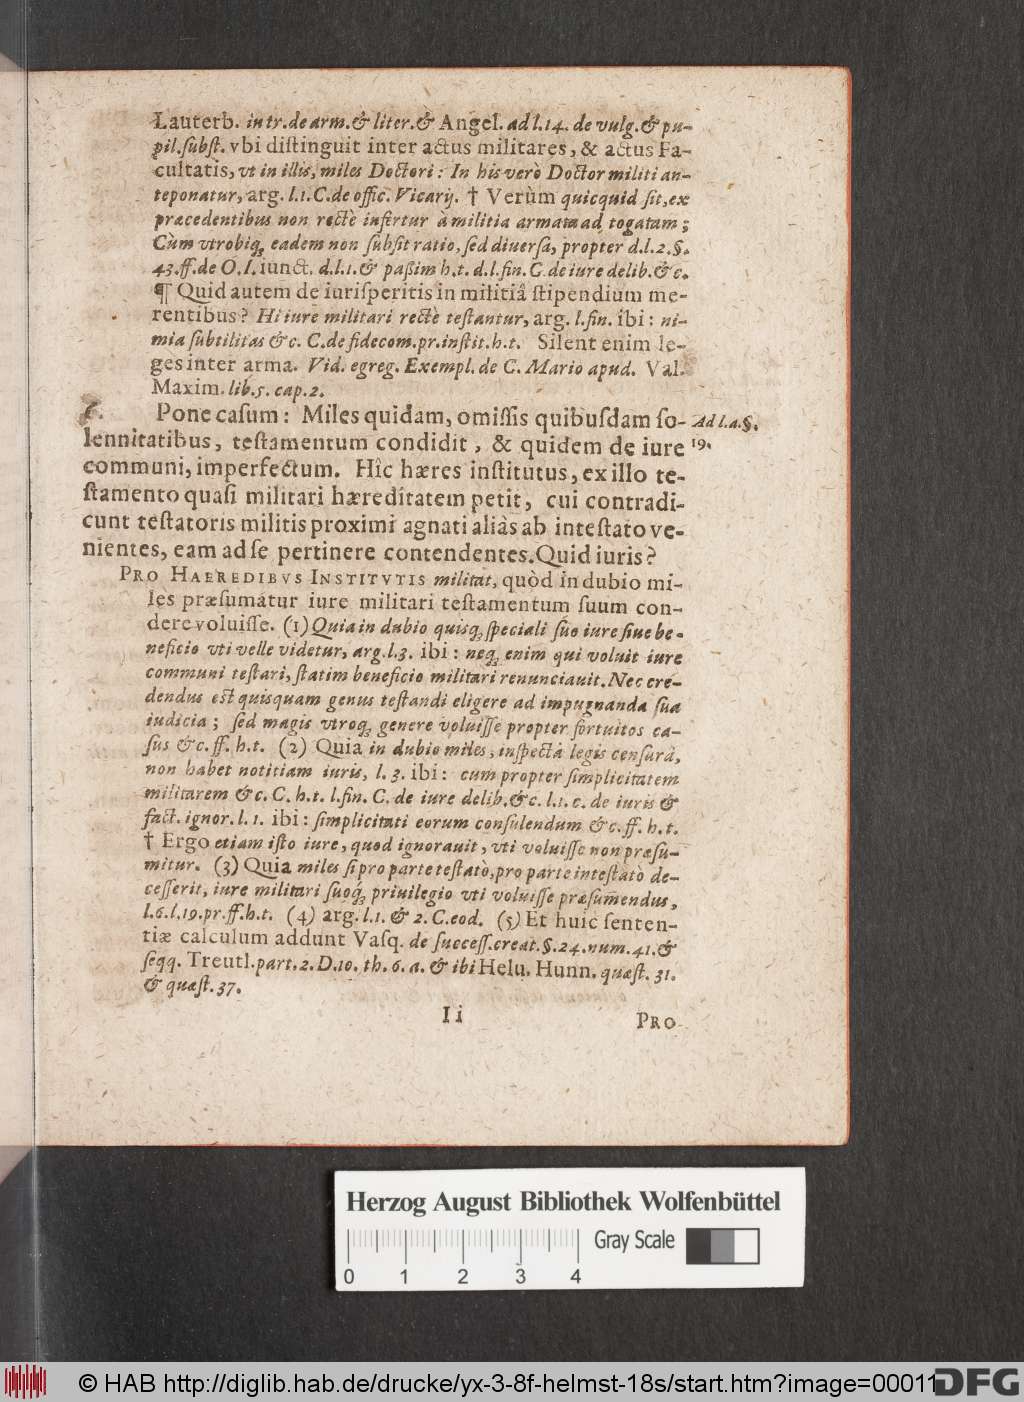 Lauterb. in tr. de arm. & liter. & Angel. ad l. 14. de vulg. & pu-
pil. ſubſt. vbi diſtinguit inter actus militares, & actus Fa-
cultatis, vt in illis, miles Doctori: In his verò Doctor militi an-
teponatur, arg. l. 1. C. de offic. Vicarij. † Verùm quicquid ſit, ex
præcedentibus non rectè infertur à militia armata ad togatam;
Cùm vtrobiq; eadem non ſubſit ratio, ſed diuerſa, propter d. l. 2. §.
43. ff. de O. I. iunct. d. l. 1. & paßim h. t. d. l. fin. C. de iure delib. &c.
¶ Quid autem de iuriſperitis in militiâ ſtipendium me-
rentibus? Hi iure militari rectè teſtantur, arg. l. fin. ibi: ni-
mia ſubtilitas &c. C. de fidecom. pr. inſtit. h. t. Silent enim le-
ges inter arma. Vid. egreg. Exempl. de C. Mario apud. Val.
Maxim. lib. 5. cap. 2.
6. Pone caſum: Miles quidam, omiſſis quibuſdam ſo- Ad l. a. §.
lennitatibus, teſtamentum condidit, & quidem de iure 19.
communi, imperfectum. Hîc hæres inſtitutus, ex illo te-
ſtamento quaſi militari hæreditatem petit, cui contradi-
cunt teſtatoris militis proximi agnati aliàs ab inteſtato ve-
nientes, eam ad ſe pertinere contendentes. Quid iuris?
PRO HAEREDIBVS INSTITVTIS militat, quòd in dubio mi-
les præſumatur iure militari teſtamentum ſuum con-
dere voluiſſe. (1) Quia in dubio quisq; ſpeciali ſuo iure ſiue be-
neficio vti velle videtur, arg. l. 3. ibi: neq; enim qui voluit iure
communi teſtari, ſtatim beneficio militari renunciauit. Nec cre-
dendus eſt quisquam genus teſtandi eligere ad impugnanda ſua
iudicia; ſed magis vtroq; genere voluiſſe propter fortuitos ca-
ſus &c. ff. h. t. (2) Quia in dubio miles, inſpectâ legis cenſurâ,
non habet notitiam iuris, l. 3. ibi: cum propter ſimplicitatem
militarem &c. C. h. t. l. fin. C. de iure delib. &c. l. 1. c. de iuris &
fact. ignor. l. 1. ibi: ſimplicitati eorum conſulendum &c. ff. h. t.
† Ergo etiam iſto iure, quod ignorauit, vti voluiſſe non præſu-
mitur. (3) Quia miles ſi pro parte teſtatò, pro parte inteſtatò de-
ceſſerit, iure militari ſuoq; priuilegio vti voluiſſe præſumendus,
l. 6. l. 19. pr. ff. h. t. (4) arg. l. 1. & 2. C. eod. (5) Et huic ſenten-
tiæ calculum addunt Vaſq. de ſucceſſ. creat. §. 24. num. 41. &
ſeqq. Treutl. part. 2. D. 10. th. 6. a. & ibi Helu. Hunn. quæſt. 31.
& quæſt. 37.
I i PRO
Herzog August Bibliothek Wolfenbüttel
Gray Scale
0 1 2 3 4
© HAB http://diglib.hab.de/drucke/yx-3-8f-helmst-18s/start.htm?image=00011
DFG